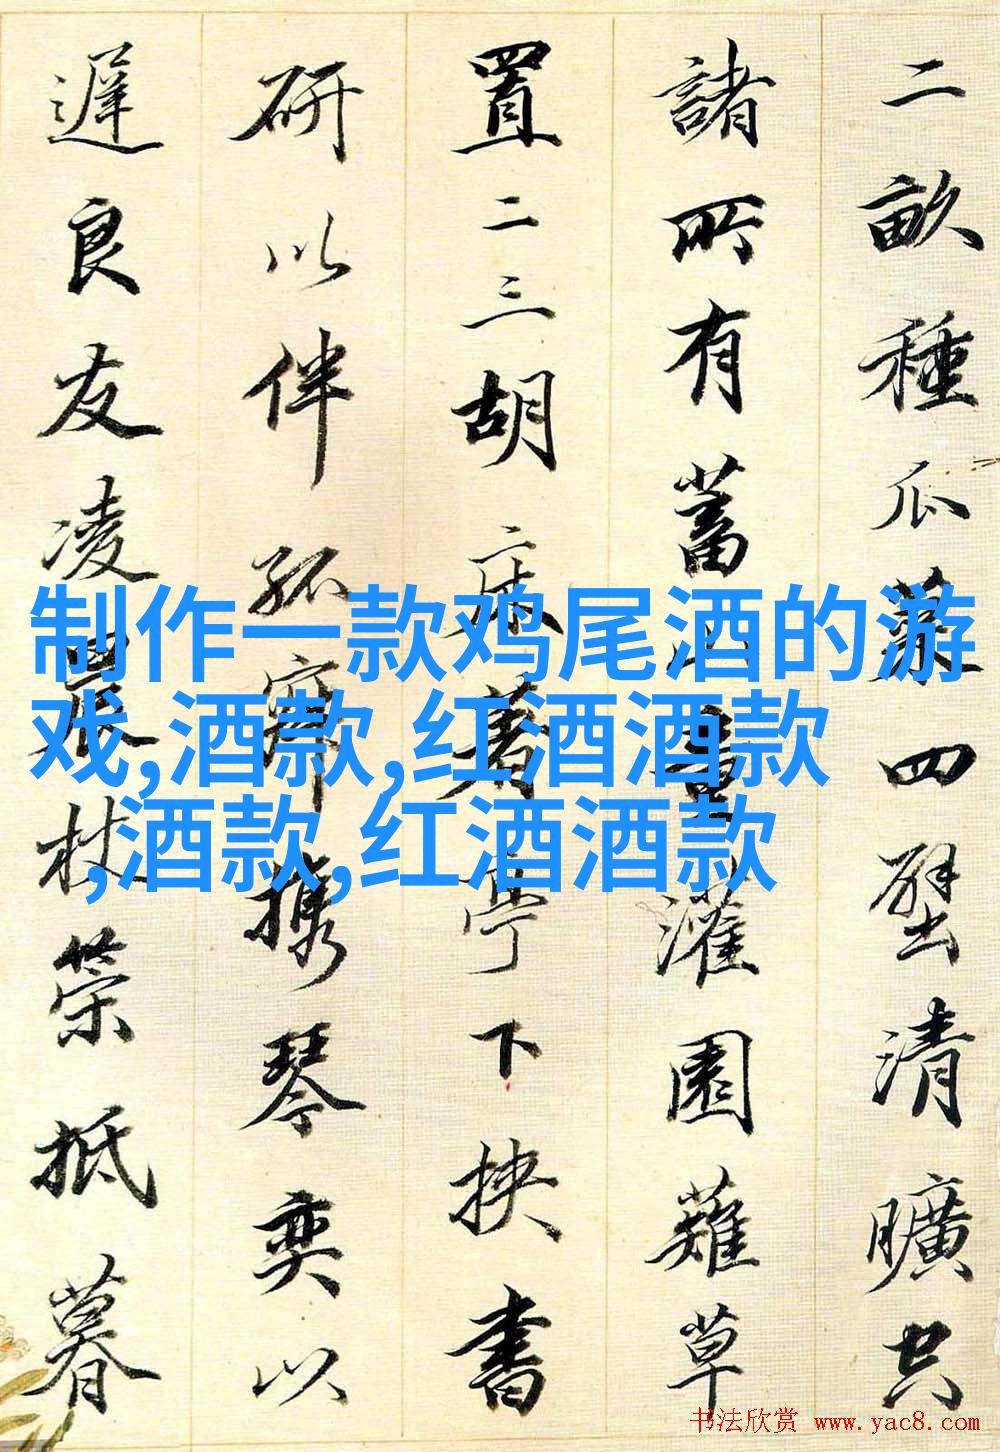 二畝種瓜菜四壁清曠空
諸所有蓄山童灌園薙草
置二三胡床着亭下挾書
研以伴孤寂攜琴奕以
遲良友凌晨杖策抵暮
制作一款鸡尾酒的游
戏,酒款,红酒酒款
,酒款,红酒酒款
书法欣赏 www.yac8.com